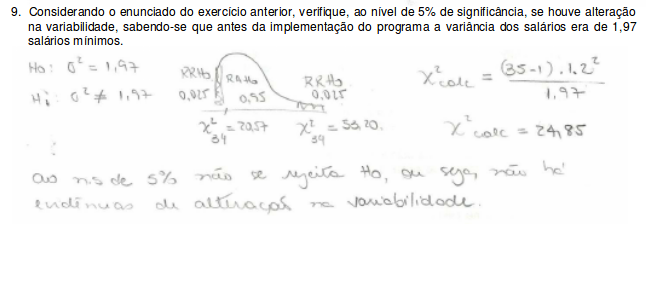 9. Considerando o enunciado do exercício anterior, verifique, ao nível de 5% de significância, se houve alteração
na variabilidade, sabendo-se que antes da implementação do programa a variância dos salários era de 1,97
salários mínimos.
Ho: σ² = 1,97
H₁: σ² ≠ 1,97
RRHo 0,025
RAHo 0,95
RRHo 0,025
χ²34 = 20,57
χ²39 = 53,20.
χ²calc = (35-1).1.2² / 1,97
χ²calc = 24,85
ao n.s de 5% não se rejeita Ho, ou seja, não há
de alteração na variabilidade.